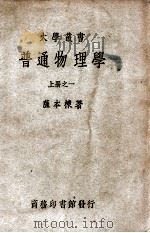 大學叢書
普通物理學
上册之一
薩本棟著
商務印書館發行